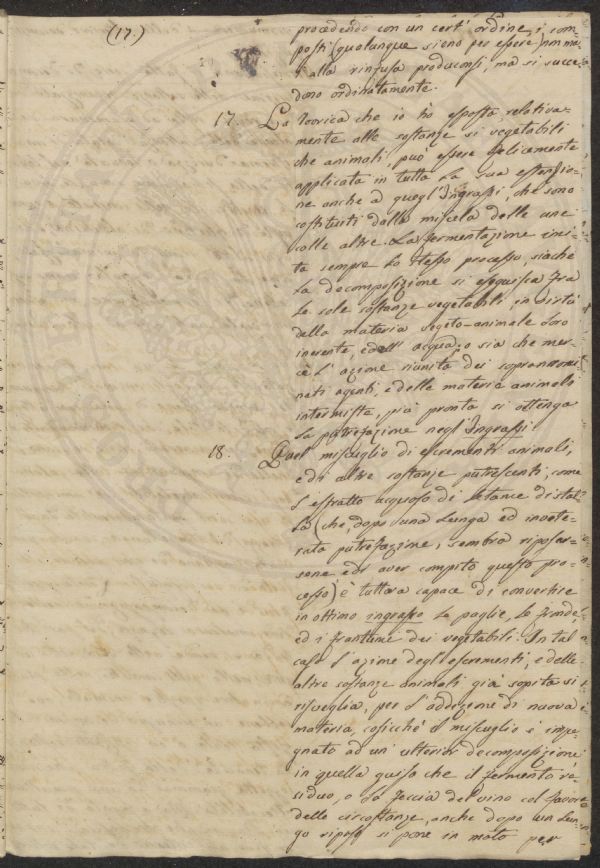 (17.)
procedendo con un cert' ordine, i com-
posti (qualunque sieno per essere) non ma-
i alla rinfusa produconsi, ma si succe-
dono ordinatamente.
17. La Teorica che io ho esposta relativa-
mente alle sostanze si vegetabili
che animali, può essere felicemente
applicata in tutta la sua estensio-
ne anche a quegl'Ingrassi, che sono
costituiti dalla miscela delle une
colle altre. La fermentazione imi-
ta sempre lo stesso processo, siache
la decomposizione si eseguisca fra
le sole sostanze vegetabili, in virtù
della materia vegeto-animale loro
inerente, e dell' acqua; o sia che mer-
cè l' azione riunita dei soprannomi-
nati agenti, e delle materie animali
intermiste, più pronta si ottenga
la putrefazione negl'Ingrassi.
18. Quel miscuglio di escrementi animali,
e di altre sostanze putrescenti, come
l' estratto acquoso di letame di stal-
la (che, dopo una lunga ed invete-
rata putrefazione, sembra riposar-
sene, ed aver compito questo pro-
cesso) è tuttora capace di convertire
in ottimo ingrasso le paglie, le frondi,
ed i frantumi dei vegetabili. In tal
caso l' azione degl'escrementi, e delle
altre sostanze animali già sopita si
risveglia, per l' addizione di nuova
materia, cosicchè il miscuglio è impe-
gnato ad un' ulterior decomposizione
in quella guisa che il fermento re-
siduo, o la feccia del vino col favore
delle circostanze, anche dopo un lun-
go riposo si pone in moto per